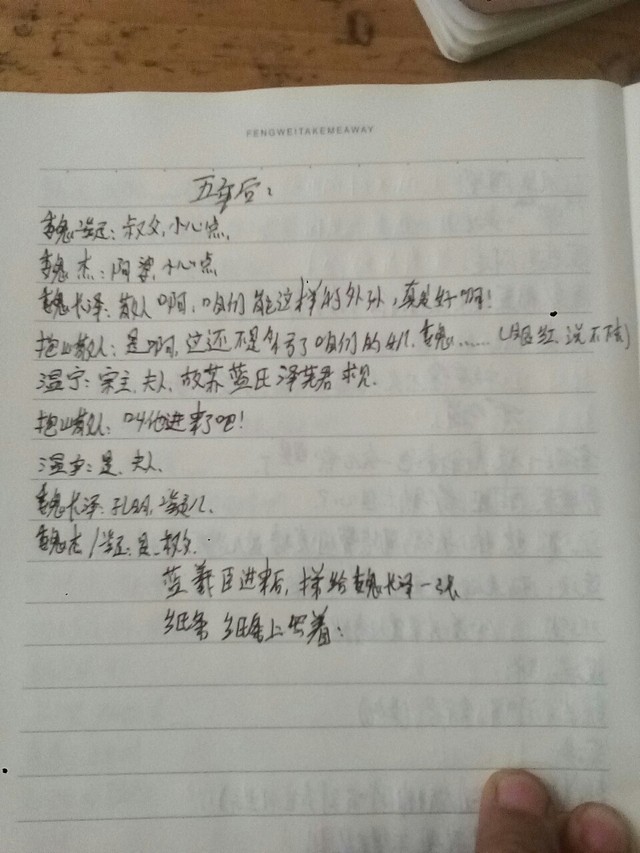 FENGWEITAKEMEAWAY
五年后：
魏婴：叔父，小心点。
魏杰：阿婆，小心点
魏长泽：散人啊，咱们能这样的外孙，真是好啊！
抱山散人：是啊，这还不是多亏了咱们的 魏……（眼红，说不下去）
温宁：宗主，夫人，故苏蓝氏泽芜君求见.
抱山散人：叫他进来吧！
温宁：是，夫人.
魏长泽：
魏杰/ 是
蓝羲臣进来后，揉给魏长泽一张
纸条 纸条上写着：